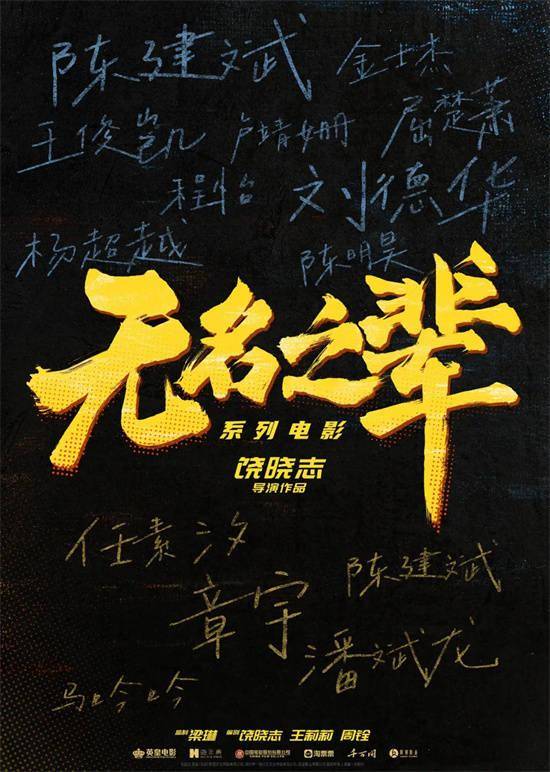 陈建斌 金士杰
王俊凯 卢靖姗 屈楚萧
程怡 刘德华
杨超越 陈明昊
无名之辈
系列电影
饶晓志
导演作品
任素汐 陈建斌
章宇 潘斌龙
马吟吟
监制 梁琳 编剧 饶晓志 王莉莉 周铨
英皇电影 淘票票